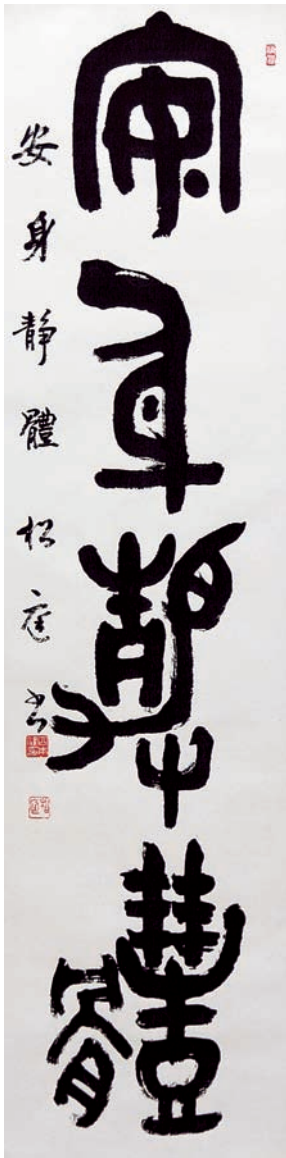 安身靜體
安身靜體 松庭書